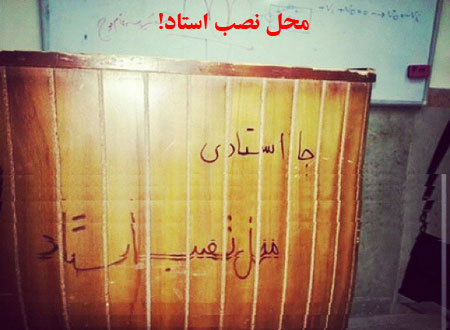 محل نصب استاد!
جا استادی
محل نصب استاد